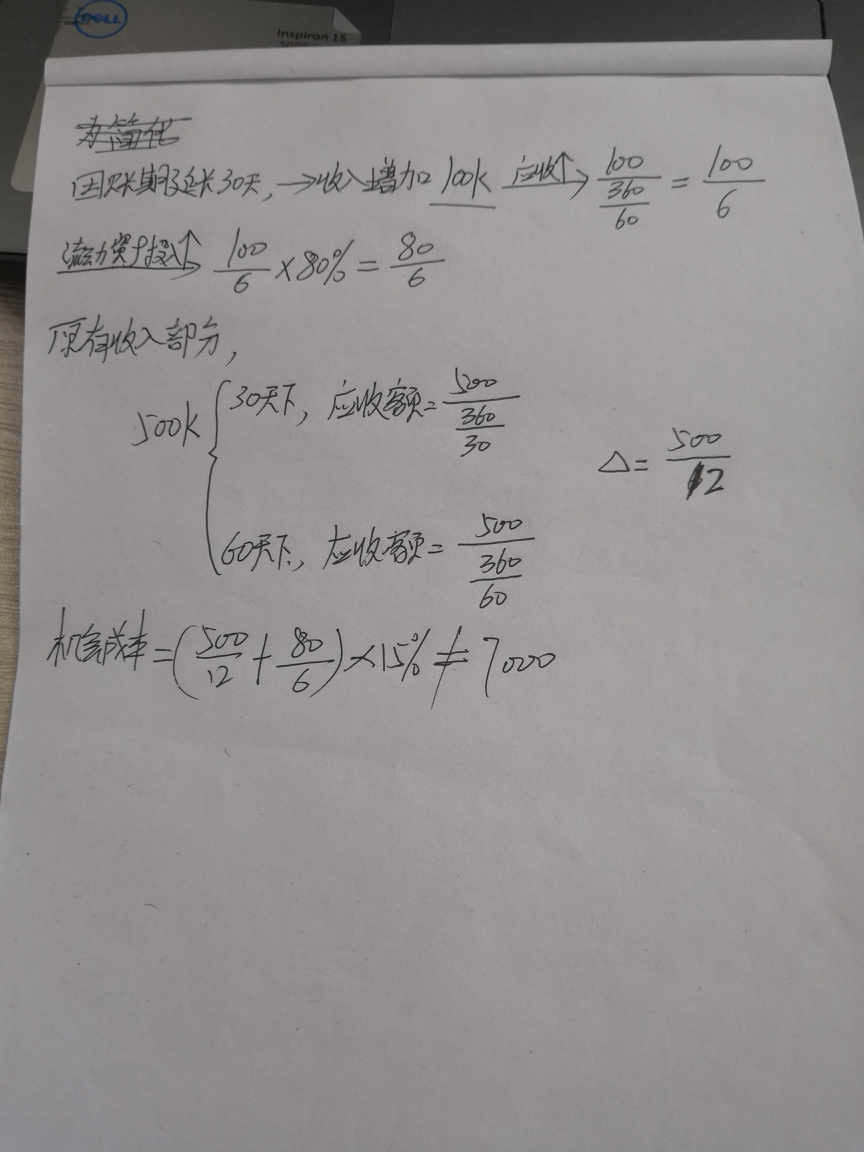 DELL
Inspiron 15
为简化
因账期延长30天, →收入增加 100k 应收↑→ 100/(360/60) = 100/6
流动资产投入↑→ 100/6 × 80% = 80/6
原有收入部分,
500k { 30天下, 应收额 = 500/(360/30)
Δ = 500/12
60天下, 应收额 = 500/(360/60)
机会成本 = (500/12 + 80/6) × 15% ≠ 7000